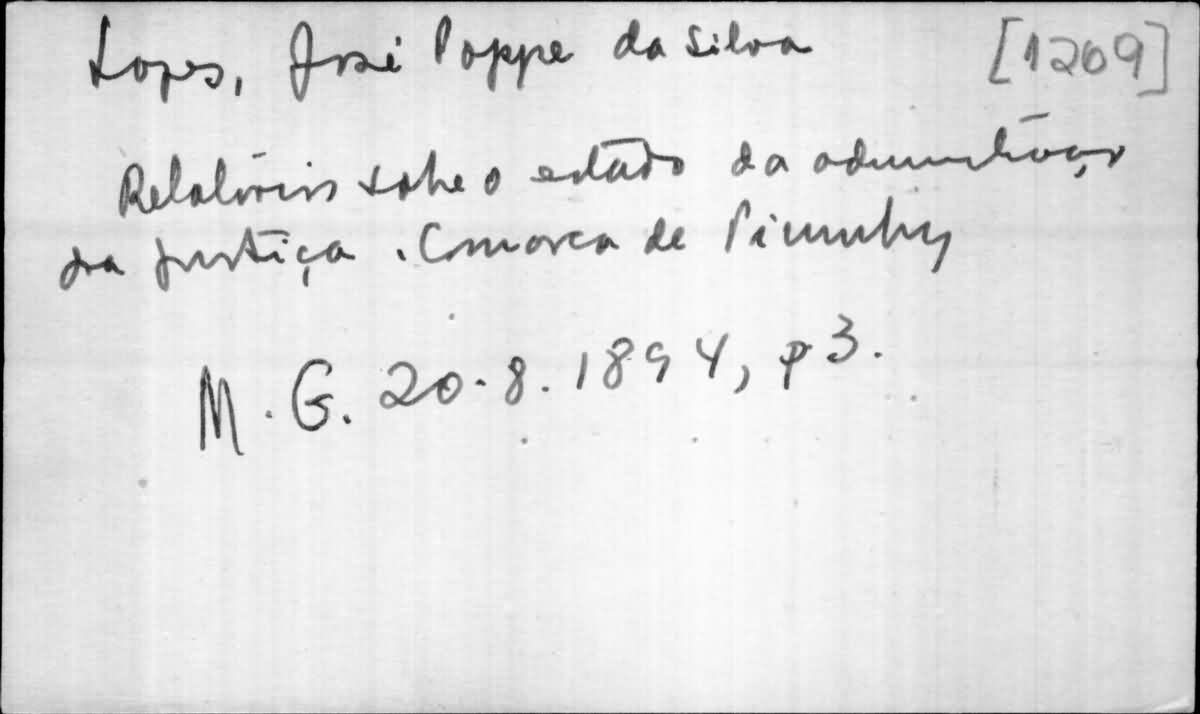 Lopes, José Poppe da Silva [1209]
Relatórios sobre o estado da administração
da justiça. Comarca de Piumhy
M. G. 20.8.1894, p 3.